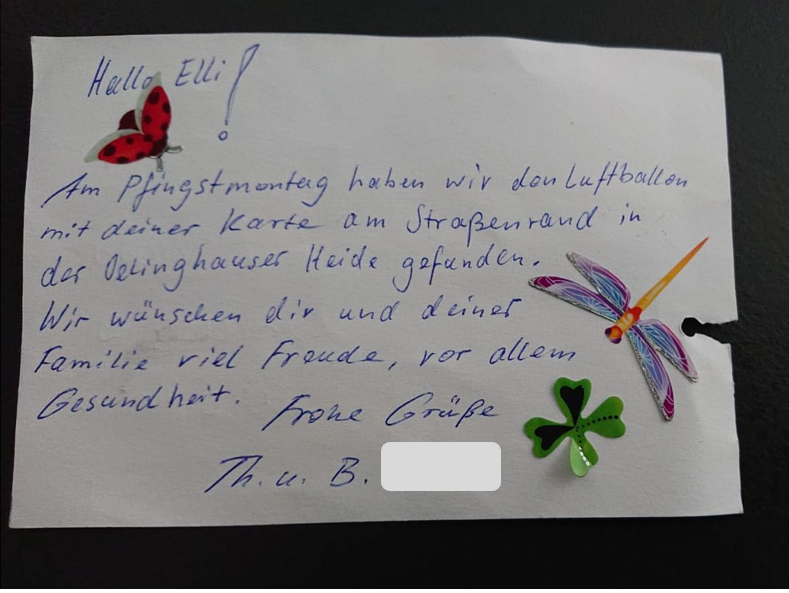 Hallo Elli!
Am Pfingstmontag haben wir den Luftballon
mit deiner Karte am Straßenrand in
der Oelinghauser Heide gefunden.
Wir wünschen dir und deiner
Familie viel Freude, vor allem
Gesundheit. Frohe Grüße
Th. u. B.